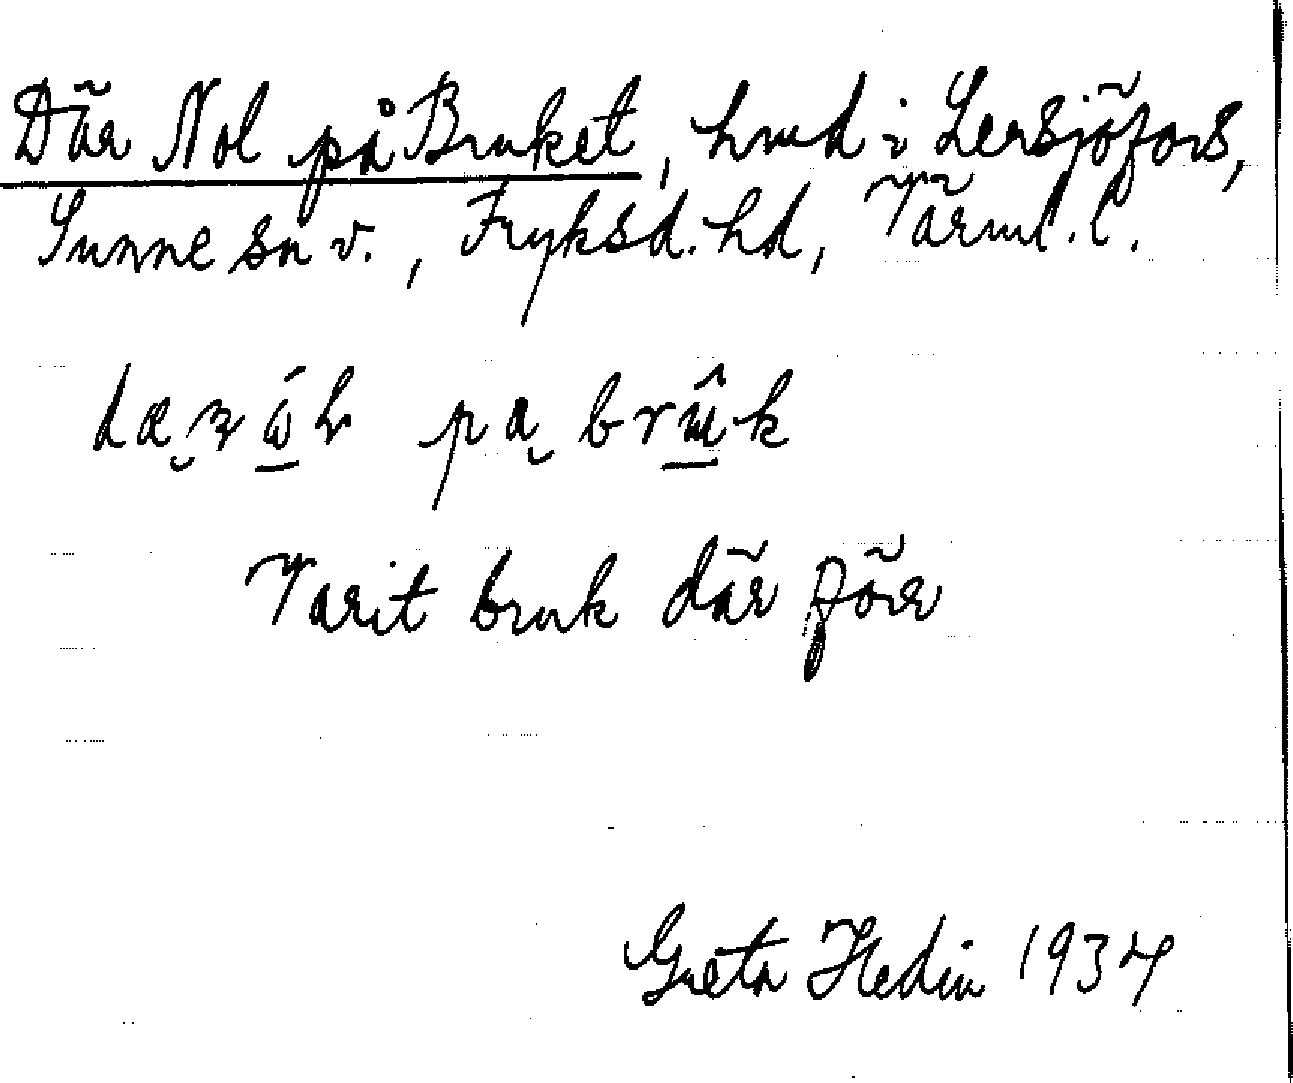 Där Nol på Bruket, hmd i Lersjöfors,
Sunne sn v., Fryksd. hd, Värml. l.
Varit bruk där förr
Greta Hedin 1934